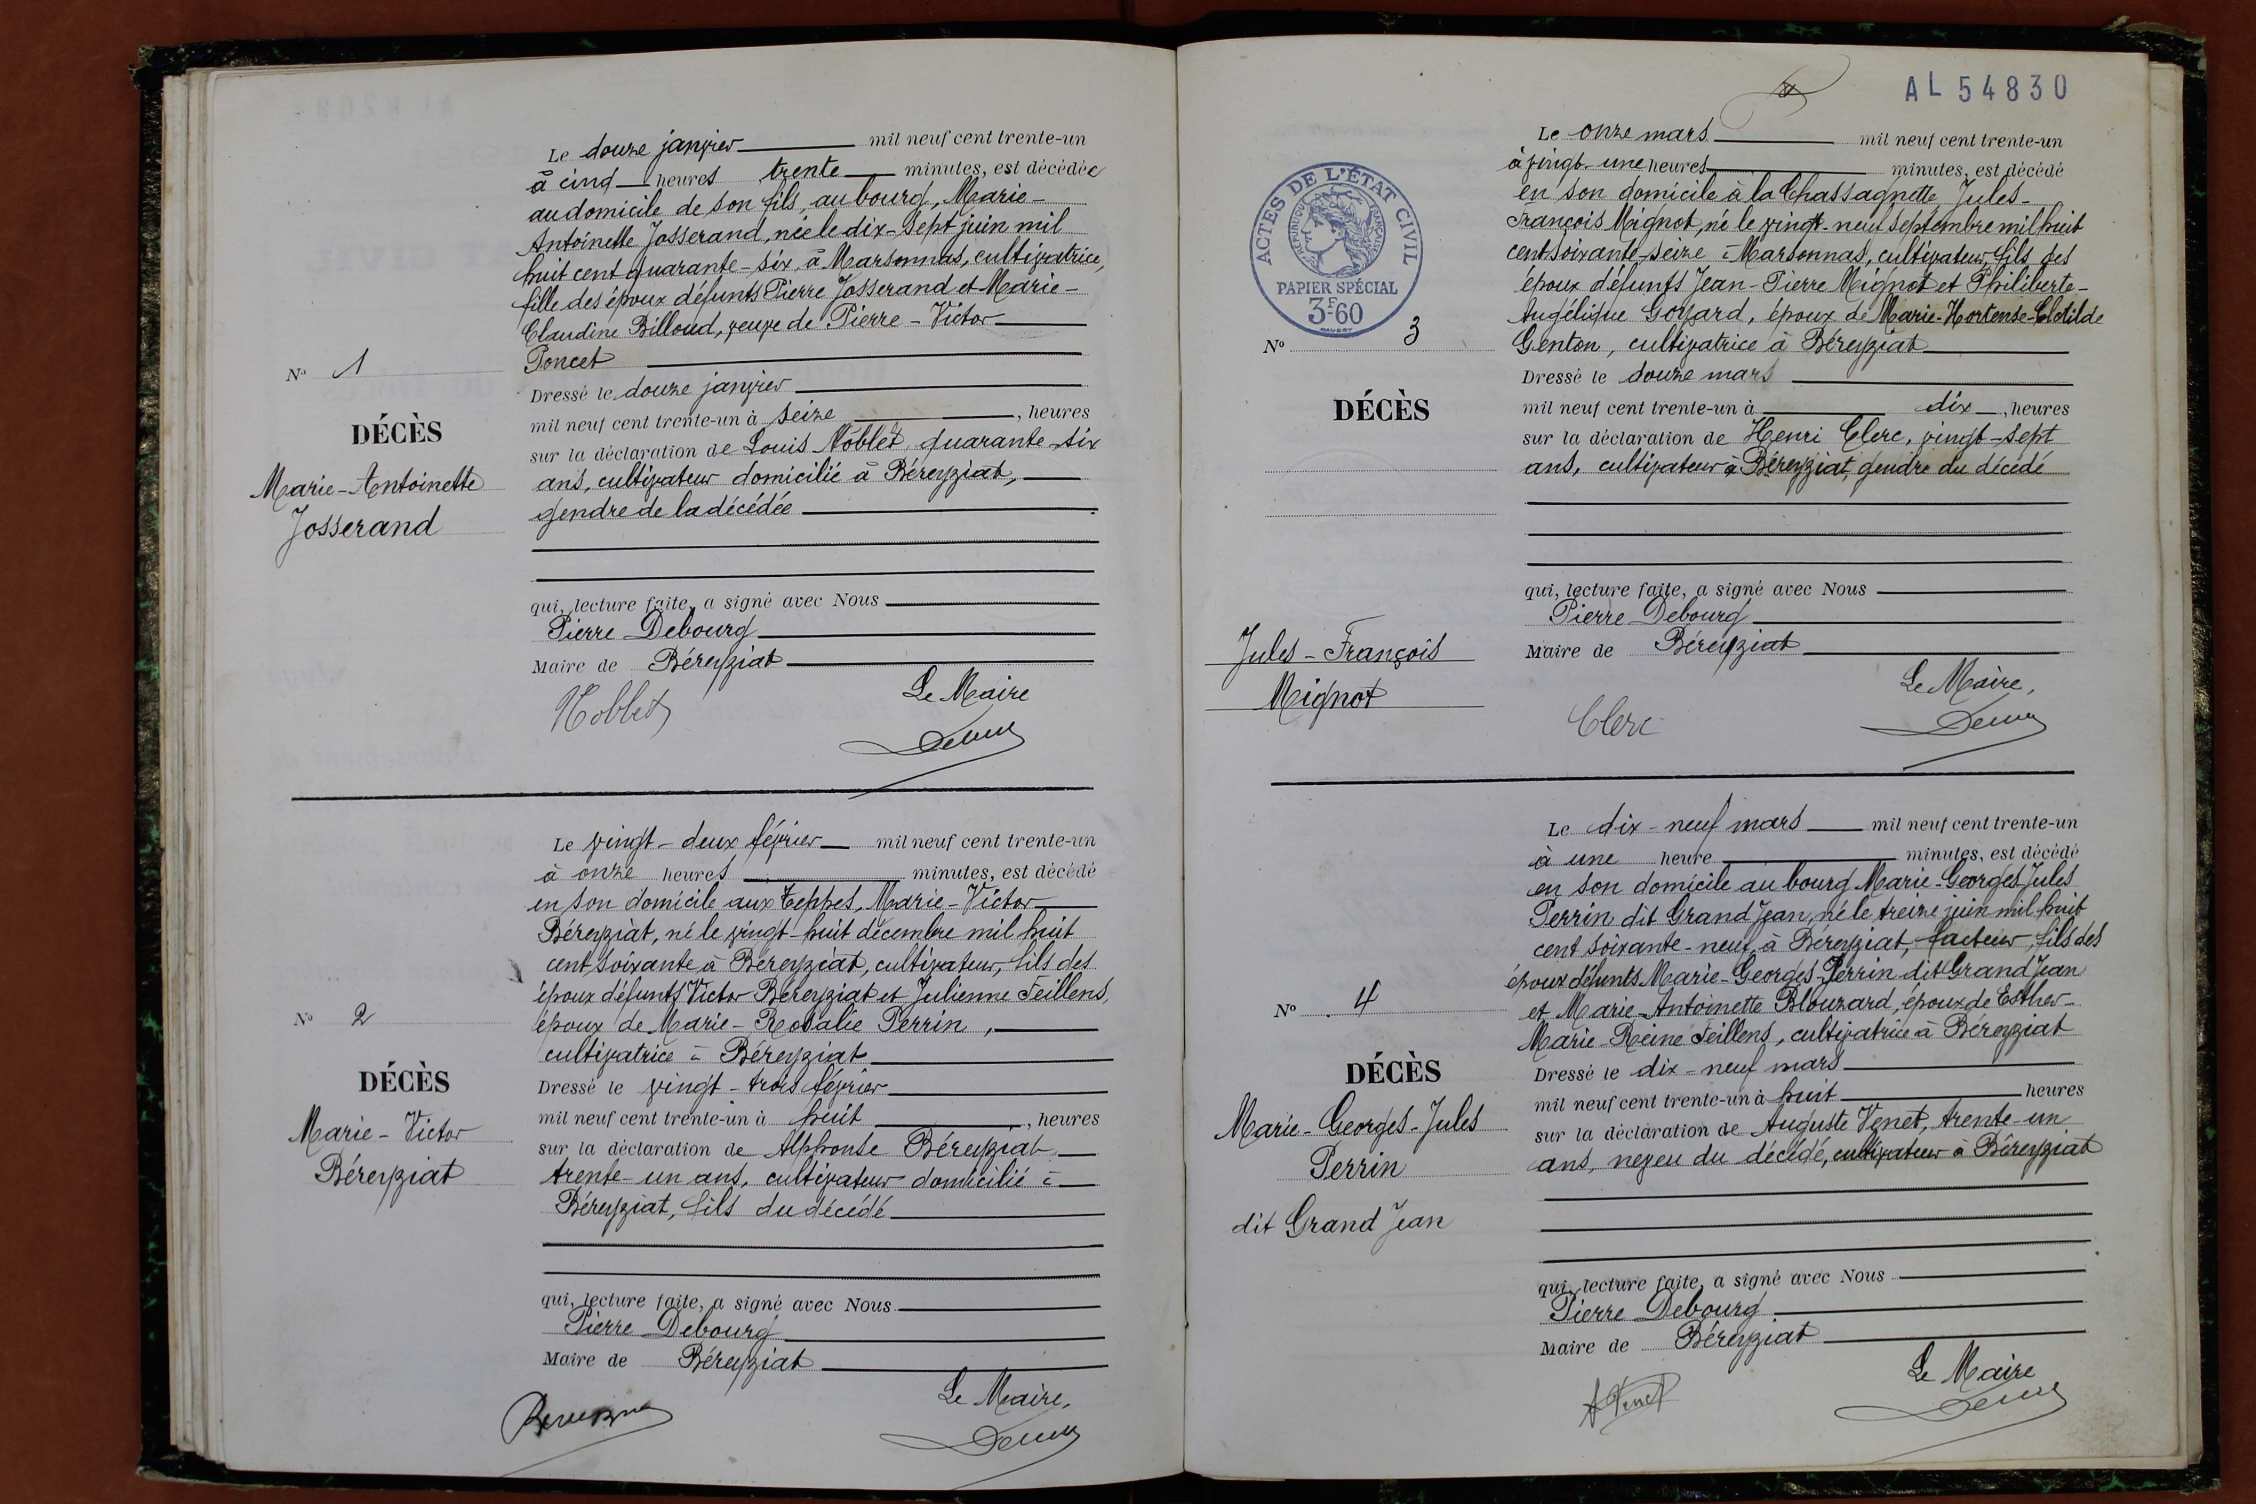 Le douze janvier mil neuf cent trente-un
à cinq heures trente minutes, est décédée
au domicile de son fils, au bourg, Marie-
Antoinette Josserand, née le dix-sept juin mil
huit cent quarante-six, à Marsonnas, cultivatrice,
fille des époux défunts Pierre Josserand et Marie-
Claudine Billoud, veuve de Pierre-Victor
Poncet
N° 1
DÉCÈS
Marie-Antoinette
Josserand
Dressé le douze janvier
mil neuf cent trente-un à seize, heures
sur la déclaration de Louis Noblet, quarante-six
ans, cultivateur domicilié à Béreyziat,
gendre de la décédée
qui, lecture faite, a signé avec Nous
Pierre Debourg
Maire de Béreyziat
Le Maire
Noblet
Le vingt-deux février mil neuf cent trente-un
à onze heures minutes, est décédé
en son domicile aux Teppes, Marie-Victor
Béreyziat, né le vingt-huit décembre mil huit
cent soixante à Béreyziat, cultivateur, fils des
époux défunts Victor Béreyziat et Julienne Feillens,
époux de Marie-Rosalie Perrin,
cultivatrice à Béreyziat
N° 2
DÉCÈS
Marie-Victor
Béreyziat
Dressé le vingt-trois février
mil neuf cent trente-un à huit, heures
sur la déclaration de Alphonse Béreyziat
trente-un ans, cultivateur domicilié à
Béreyziat, fils du décédé
qui, lecture faite, a signé avec Nous
Pierre Debourg
Maire de Béreyziat
Le Maire,
AL 54830
ACTES DE L'ÉTAT CIVIL
RÉPUBLIQUE FRANÇAISE
PAPIER SPÉCIAL
3F60
Le onze mars mil neuf cent trente-un
à vingt-une heures minutes, est décédé
en son domicile à la Chassagnette, Jules-
François Mignot, né le vingt-neuf septembre mil huit
cent soixante-seize à Marsonnas, cultivateur, fils des
époux défunts Jean-Pierre Mignot et Philiberte-
Angélique Goyard, époux de Marie-Hortense-Clotilde
Genton, cultivatrice à Béreyziat
N° 3
DÉCÈS
Jules-François
Mignot
Dressé le douze mars
mil neuf cent trente-un à dix, heures
sur la déclaration de Henri Clerc, vingt-sept
ans, cultivateur à Béreyziat, gendre du décédé
qui, lecture faite, a signé avec Nous
Pierre Debourg
Maire de Béreyziat
Le Maire,
Clerc
Le dix-neuf mars mil neuf cent trente-un
à une heure minutes, est décédé
en son domicile au bourg Marie-Georges-Jules
Perrin dit Grand Jean, né le treize juin mil huit
cent soixante-neuf, à Béreyziat, facteur, fils des
époux défunts Marie-Georges Perrin dit Grand Jean
et Marie-Antoinette Blouzard, époux de Esther-
Marie-Reine Feillens, cultivatrice à Béreyziat
N° 4
DÉCÈS
Marie-Georges-Jules
Perrin
dit Grand Jean
Dressé le dix-neuf mars
mil neuf cent trente-un à huit heures
sur la déclaration de Auguste Venet, trente-un
ans, neveu du décédé, cultivateur à Béreyziat
qui, lecture faite, a signé avec Nous
Pierre Debourg
Maire de Béreyziat
Le Maire